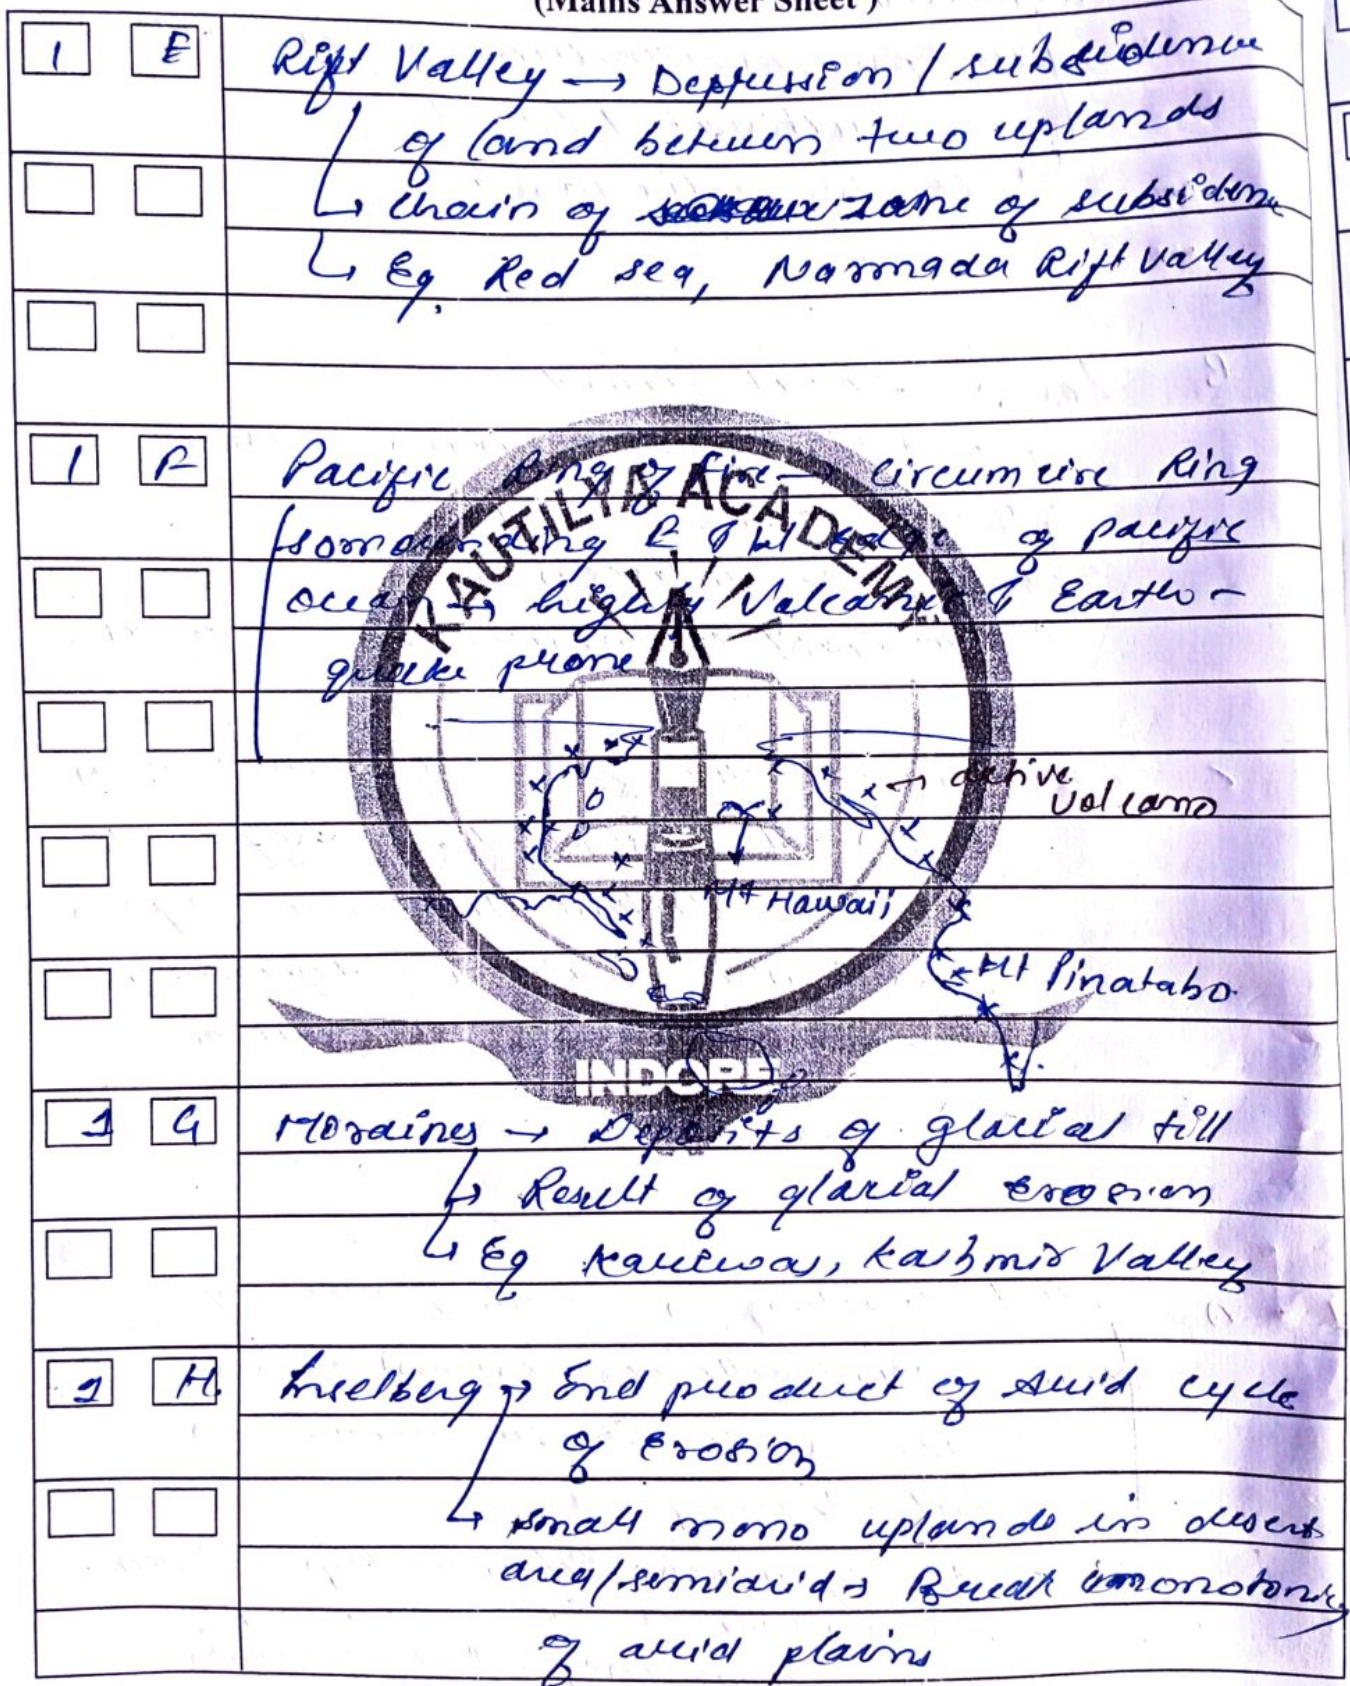 (Mains Answer Sheet )
1 E Rift Valley → Depression / subsidence
of land between two uplands
↳ Chain of zone of subsidence
↳ Eg. Red sea, Narmada Rift Valley
1 F Pacific Ring of fire → circum Ring
E & W edge of pacific
ocean → highly Volcanic & Earth-
quake prone
→ active
Volcano
Mt Hawaii
Mt Pinatabo
KAUTILYA ACADEMY
INDORE
1 G Moraines → Deposits of glacial till
↳ Result of glacial erosion
↳ Eg Kashmir Valley
1 H. Inselberg → End product of Arid cycle
of Erosion
↳ small mono uplands in desert
area/semiarid → Break monotony
of arid plains